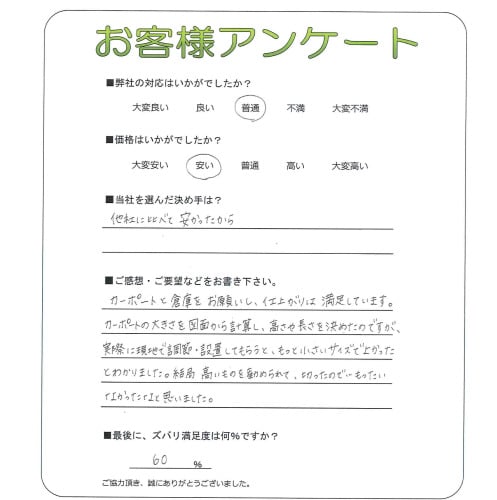 お客様アンケート
■弊社の対応はいかがでしたか？
大変良い 良い 普通 不満 大変不満
■価格はいかがでしたか？
大変安い 安い 普通 高い 大変高い
■当社を選んだ決め手は？
他社に比べて安かったから
■ご感想・ご要望などをお書き下さい。
カーポートと倉庫をお願いし、仕上がりは満足しています。
カーポートの大きさを図面から計算し、高さや長さを決めたのですが、
実際に現地で調節・設置してもらうと、もっと小さいサイズで良かった
とわかりました。結局高いものを勧められて、切ったのでもったい
なかったなと思いました。
■最後に、ズバリ満足度は何％ですか？
60 ％
ご協力頂き、誠にありがとうございました。